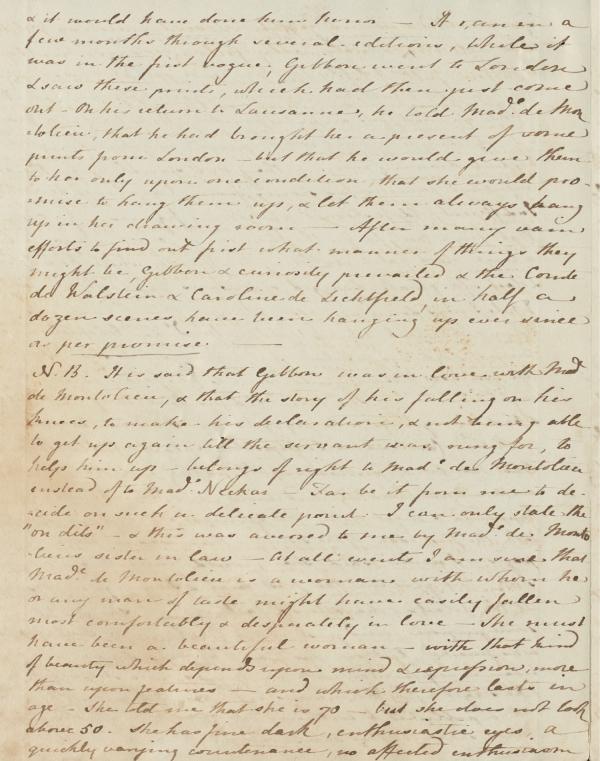 & it would have done him honor — It ran in a
few months through several editions, while it
was in the first vogue, Gibbon went to London
& saw these prints, which had then just come
out — On his return to Lausanne, he told Madᵉ. de Mon
tolieu, that he had brought her a present of some
prints from London — but that he would give them
to her only upon one condition, that she would pro-
-mise to hang them up, & let them always hang
up in her drawing room — After many vain
efforts to find out first what manner of things they
might be, Gibbon & curiosity prevailed & the Comte
de Walstein & Caroline de Lichtfield, in half a
dozen scenes have been hanging up ever since
as per promise. —
N.B. It is said that Gibbon was in love with Madᵉ
de Montolieu, & that the story of his falling on his
knees, to make his declaration, & not being able
to get up again till the servant was rung for, to
help him up — belongs of right to Madᵉ de Montolieu
instead of to Madᵉ. Neckar — Far be it from me to de-
-cide on such a delicate point. I can only state the
"on dits" — & this was averred to me by Madᵉ. de Monto
lieus sister in law — At all events I am sure that
Madᵉ. de Montolieu is a woman with whom he
or any man of taste might have easily fallen
most comfortably & desperately in love — She must
have been a beautiful woman — with that kind
of beauty which depends upon mind & expression, more
than upon features — and which therefore lasts in
age — She told me that she is 70 — but she does not look
above 50. She has fine dark, enthusiastic eyes, a
quickly varying countenance, no affected enthusiasm